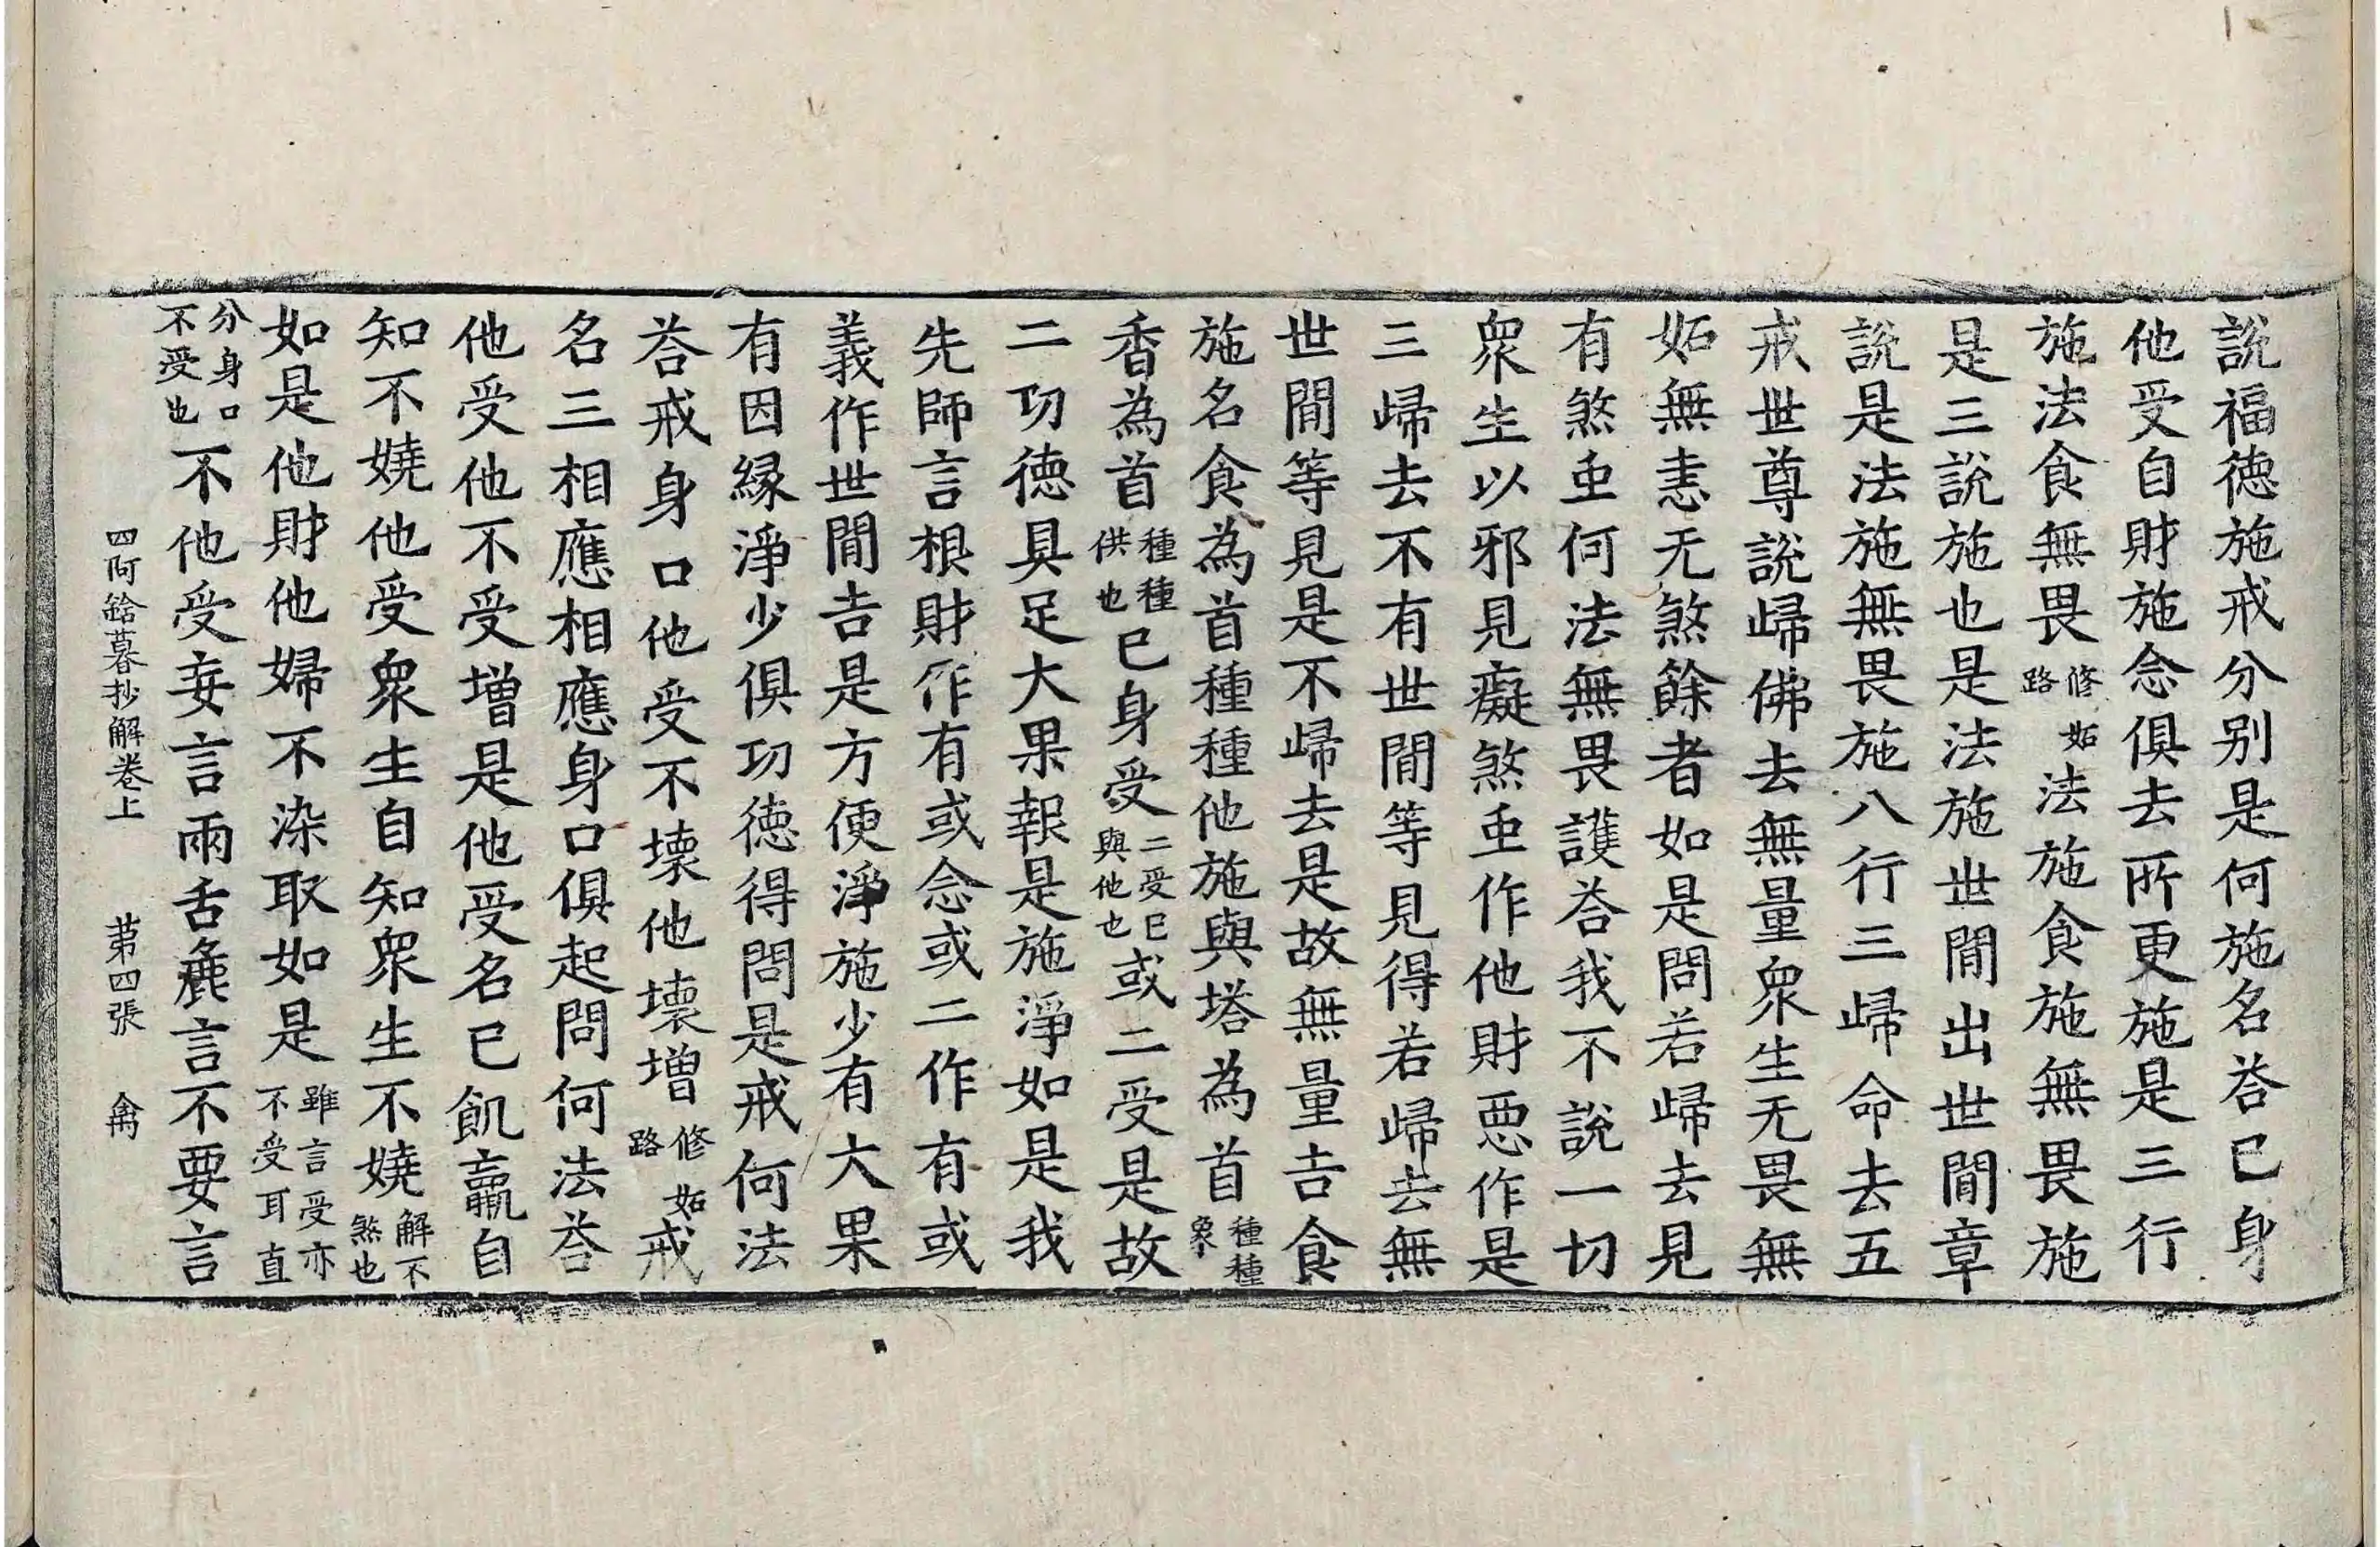 說福德施戒分别是何施名荅已身
他受自財施念俱去所更施是三行
施法食無畏修妬路法施食施無畏施
是三說施也是法施世間出世間章
說是法施無畏施八行三歸命去五
戒世尊說歸佛去無量衆生无畏無
妬無恚无煞餘者如是問若歸去見
有煞重何法無畏護荅我不說一切
衆生以邪見癡煞重作他財惡作是
三歸去不有世間等見得若歸去無
世間等見是不歸去是故無量吉食
施名食為首種種他施與塔為首種種象
香為首種種供也已身受二受已與他也或二受是故
二功德具足大果報是施淨如是我
先師言根財作有或念或二作有或
義作世間吉是方便淨施少有大果
有因緣淨少俱功德得問是戒何法
荅戒身口他受不壞他壞增修妬路戒
名三相應相應身口俱起問何法荅
他受他不受增是他受名已飢羸自
知不嬈他受衆生自知衆生不嬈解不煞也
如是他財他婦不染取如是雖言受亦不受耳直
分身口不受也不他受妄言兩舌麁言不要言
四阿鋡暮抄解卷上 苐四張 禽